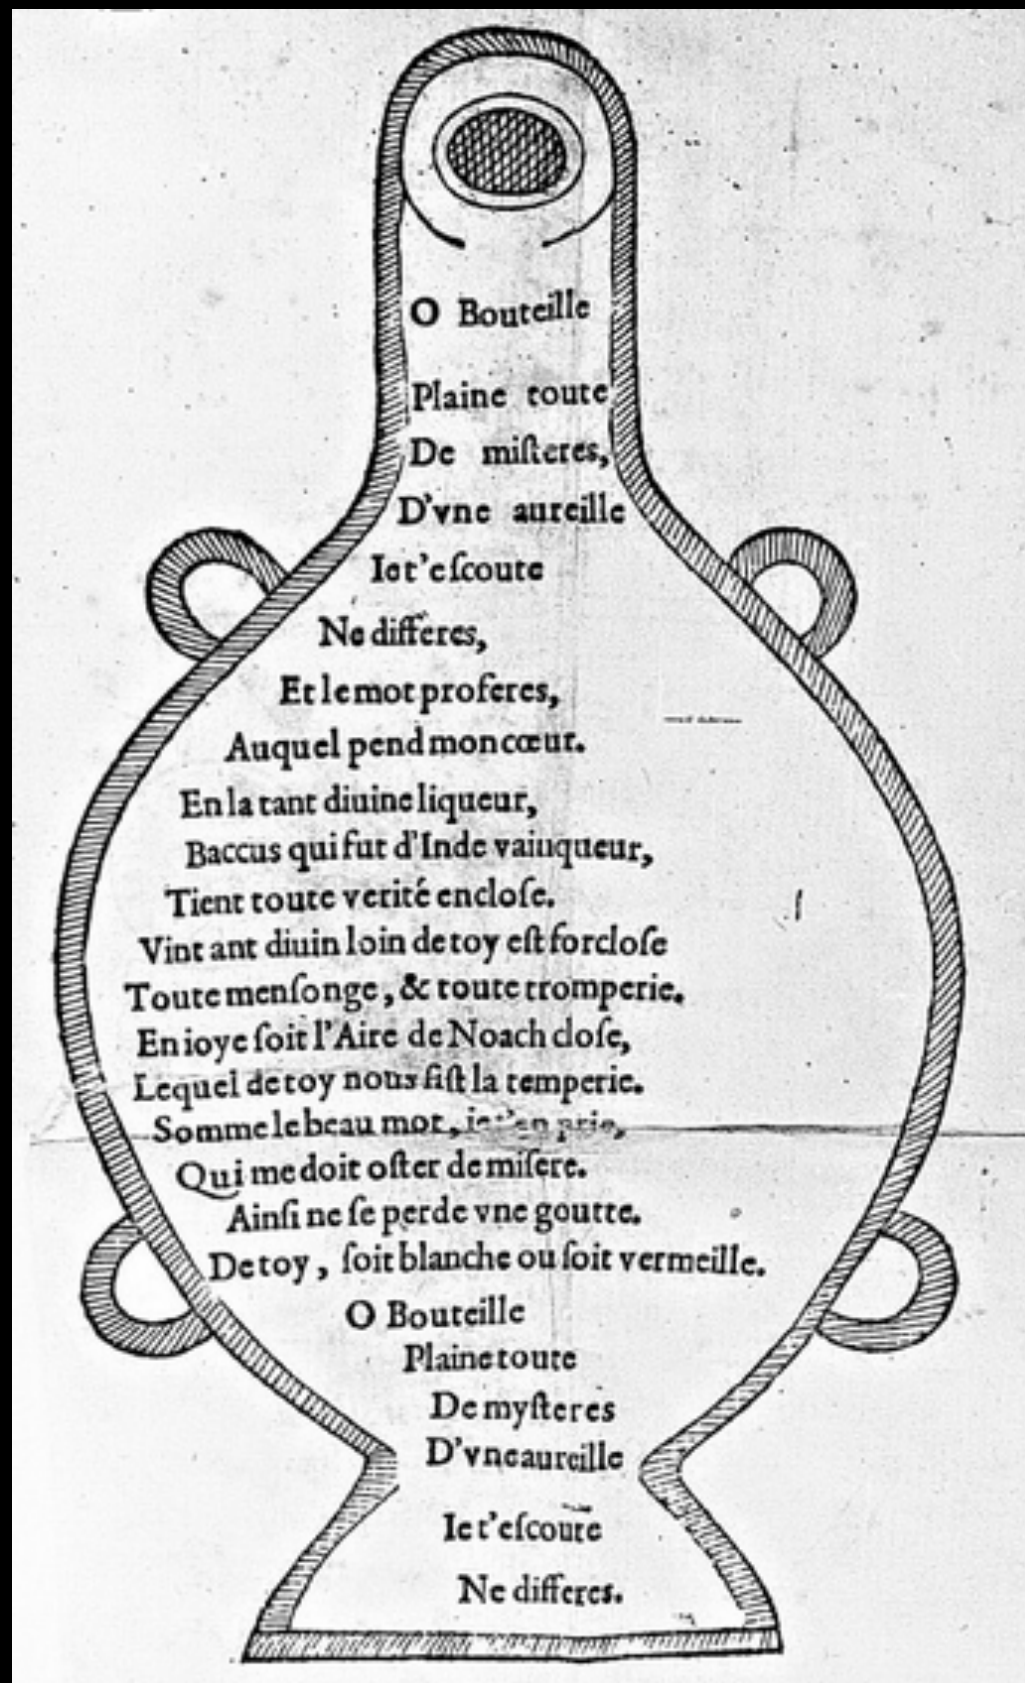 O Bouteille
Plaine toute
De miſteres,
D'vne aureille
Iet'eſcoute
Ne differes,
Et le mot proferes,
Auquel pend mon cœur.
En la tant diuine liqueur,
Baccus qui fut d'Inde vaiuqueur,
Tient toute verité encloſe.
Vint ant diuin loin de toy eſt forcloſe
Toute menſonge, & toute tromperie.
En ioye ſoit l'Aire de Noach cloſe,
Lequel de toy nous fiſt la temperie.
Somme le beau mot, ie t'en prie,
Qui me doit oſter de miſere.
Ainſi ne ſe perde vne goutte.
De toy, ſoit blanche ou ſoit vermeille.
O Bouteille
Plaine toute
De myſteres
D'vne aureille
Iet'eſcoute
Ne differes.